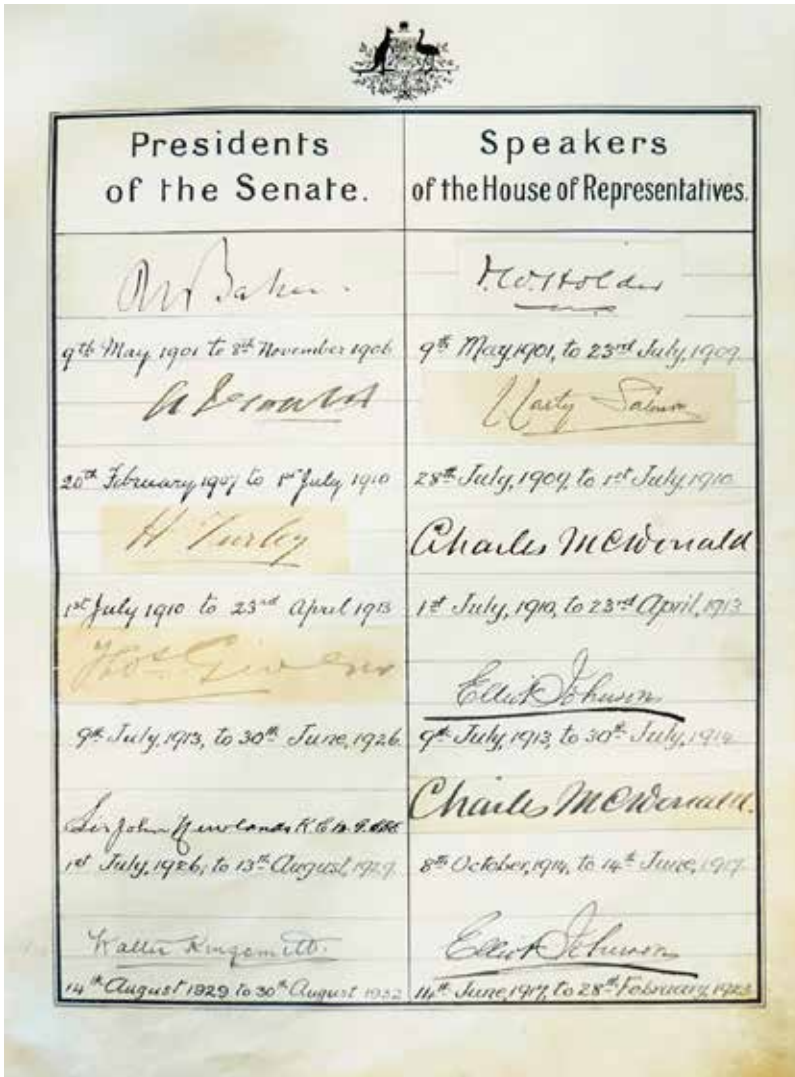 Presidents
of the Senate.
Baker.
9th May 1901 to 8th November 1906
20th February 1907 to 1st July 1910
H Turley
1st July 1910 to 23rd April 1913
Thos Givens
9th July, 1913, to 30th June, 1926
Sir John Newlands K.C.M.G.
1st July, 1926, to 13th August, 1929
Walter Kingsmill.
14th August 1929 to 30th August 1932
Speakers
of the House of Representatives.
F.W. Holder
9th May, 1901, to 23rd July, 1909
Carty Salmon
28th July, 1909, to 1st July, 1910
Charles McDonald
1st July, 1910, to 23rd April, 1913
Elliot Johnson
9th July, 1913, to 30th July, 1914
Charles McDonald.
8th October, 1914, to 14th June, 1917
Elliot Johnson
14th June, 1917, to 28th February, 1923